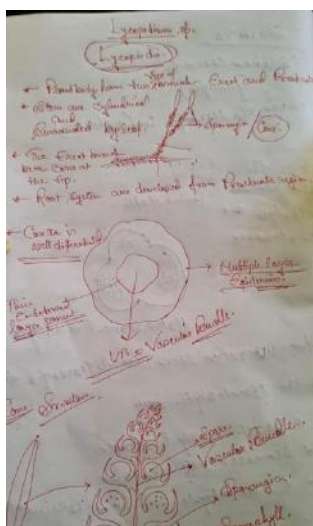 Lycopodium sp.
Lycopodia
Plant body have two type of branch Erect and Prostrate
Stem are Cylindrical
and
Surrounded by leaf.
Sporangia
Cone
The Erect branch
have Cone at
the tip.
Root System are developed from Prostrate region.
Cortex is
well differentiated
Multiple layer
Epidermis
Thin
Endodermis
layer present
VB = Vascular Bundle.
Cone Structure
Spore
Vascular Bundle.
Sporangia.
Sporophyll.